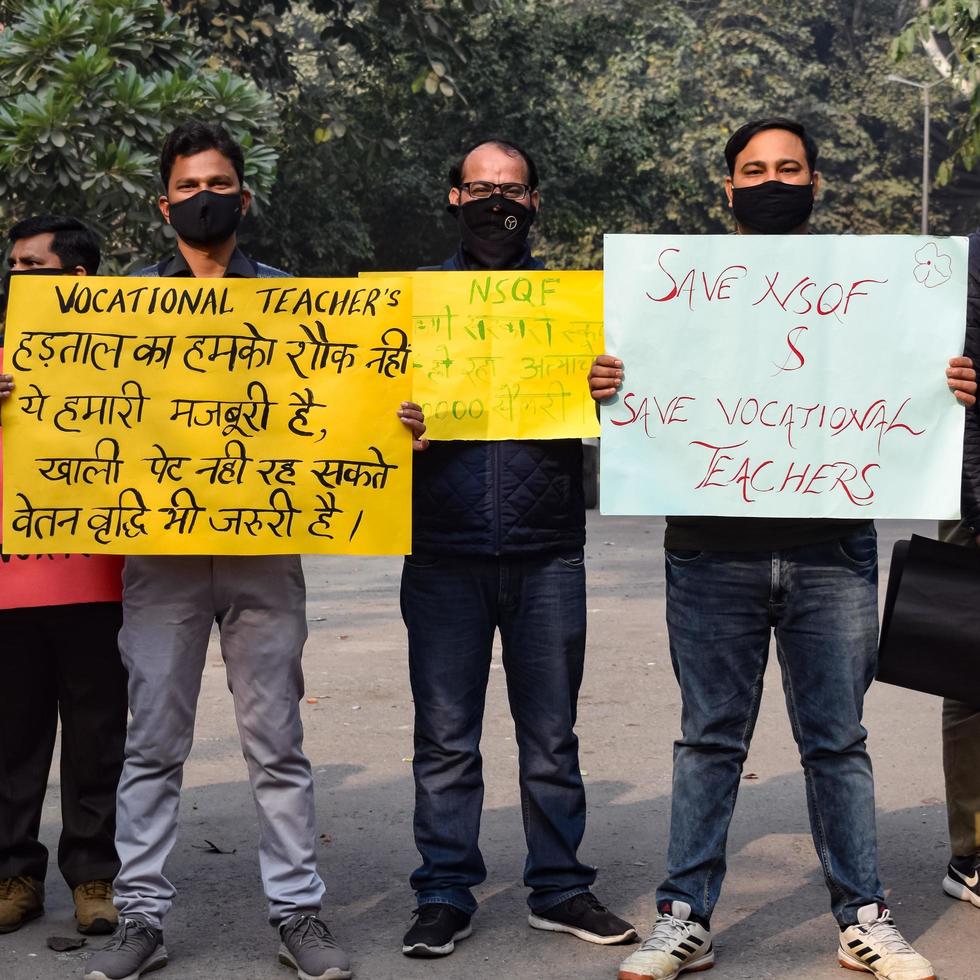 VOCATIONAL TEACHER's
हड़ताल का हमको शौक नहीं
ये हमारी मजबूरी है,
खाली पेट नही रह सकते
वेतन वृद्धि भी जरुरी है।
NSQF
सरकारी
हो रहा
0000
SAVE NSQF
&
SAVE VOCATIONAL
TEACHERS